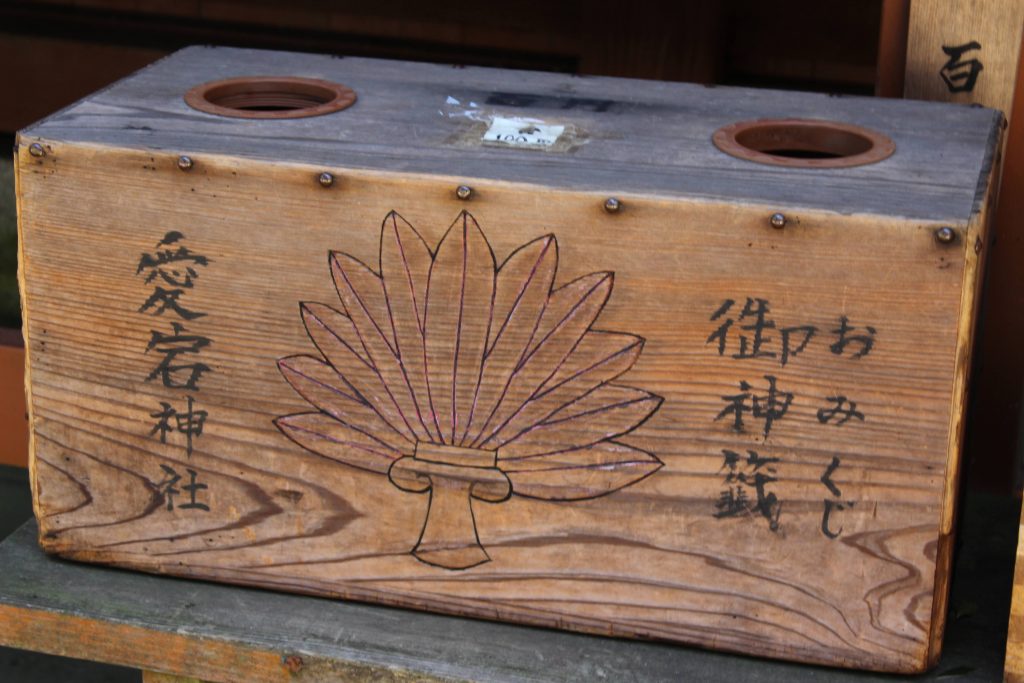 百
100円
おみくじ
御神籤
愛宕神社